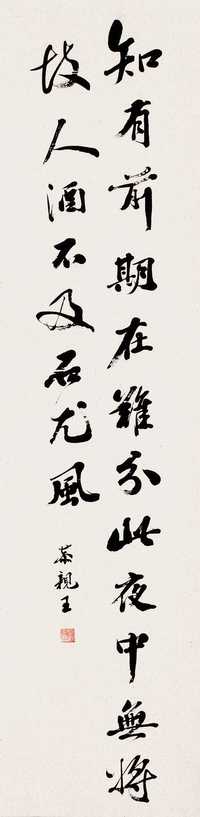 知有前期在難分此夜中無將
故人酒不及石尤風
恭親王